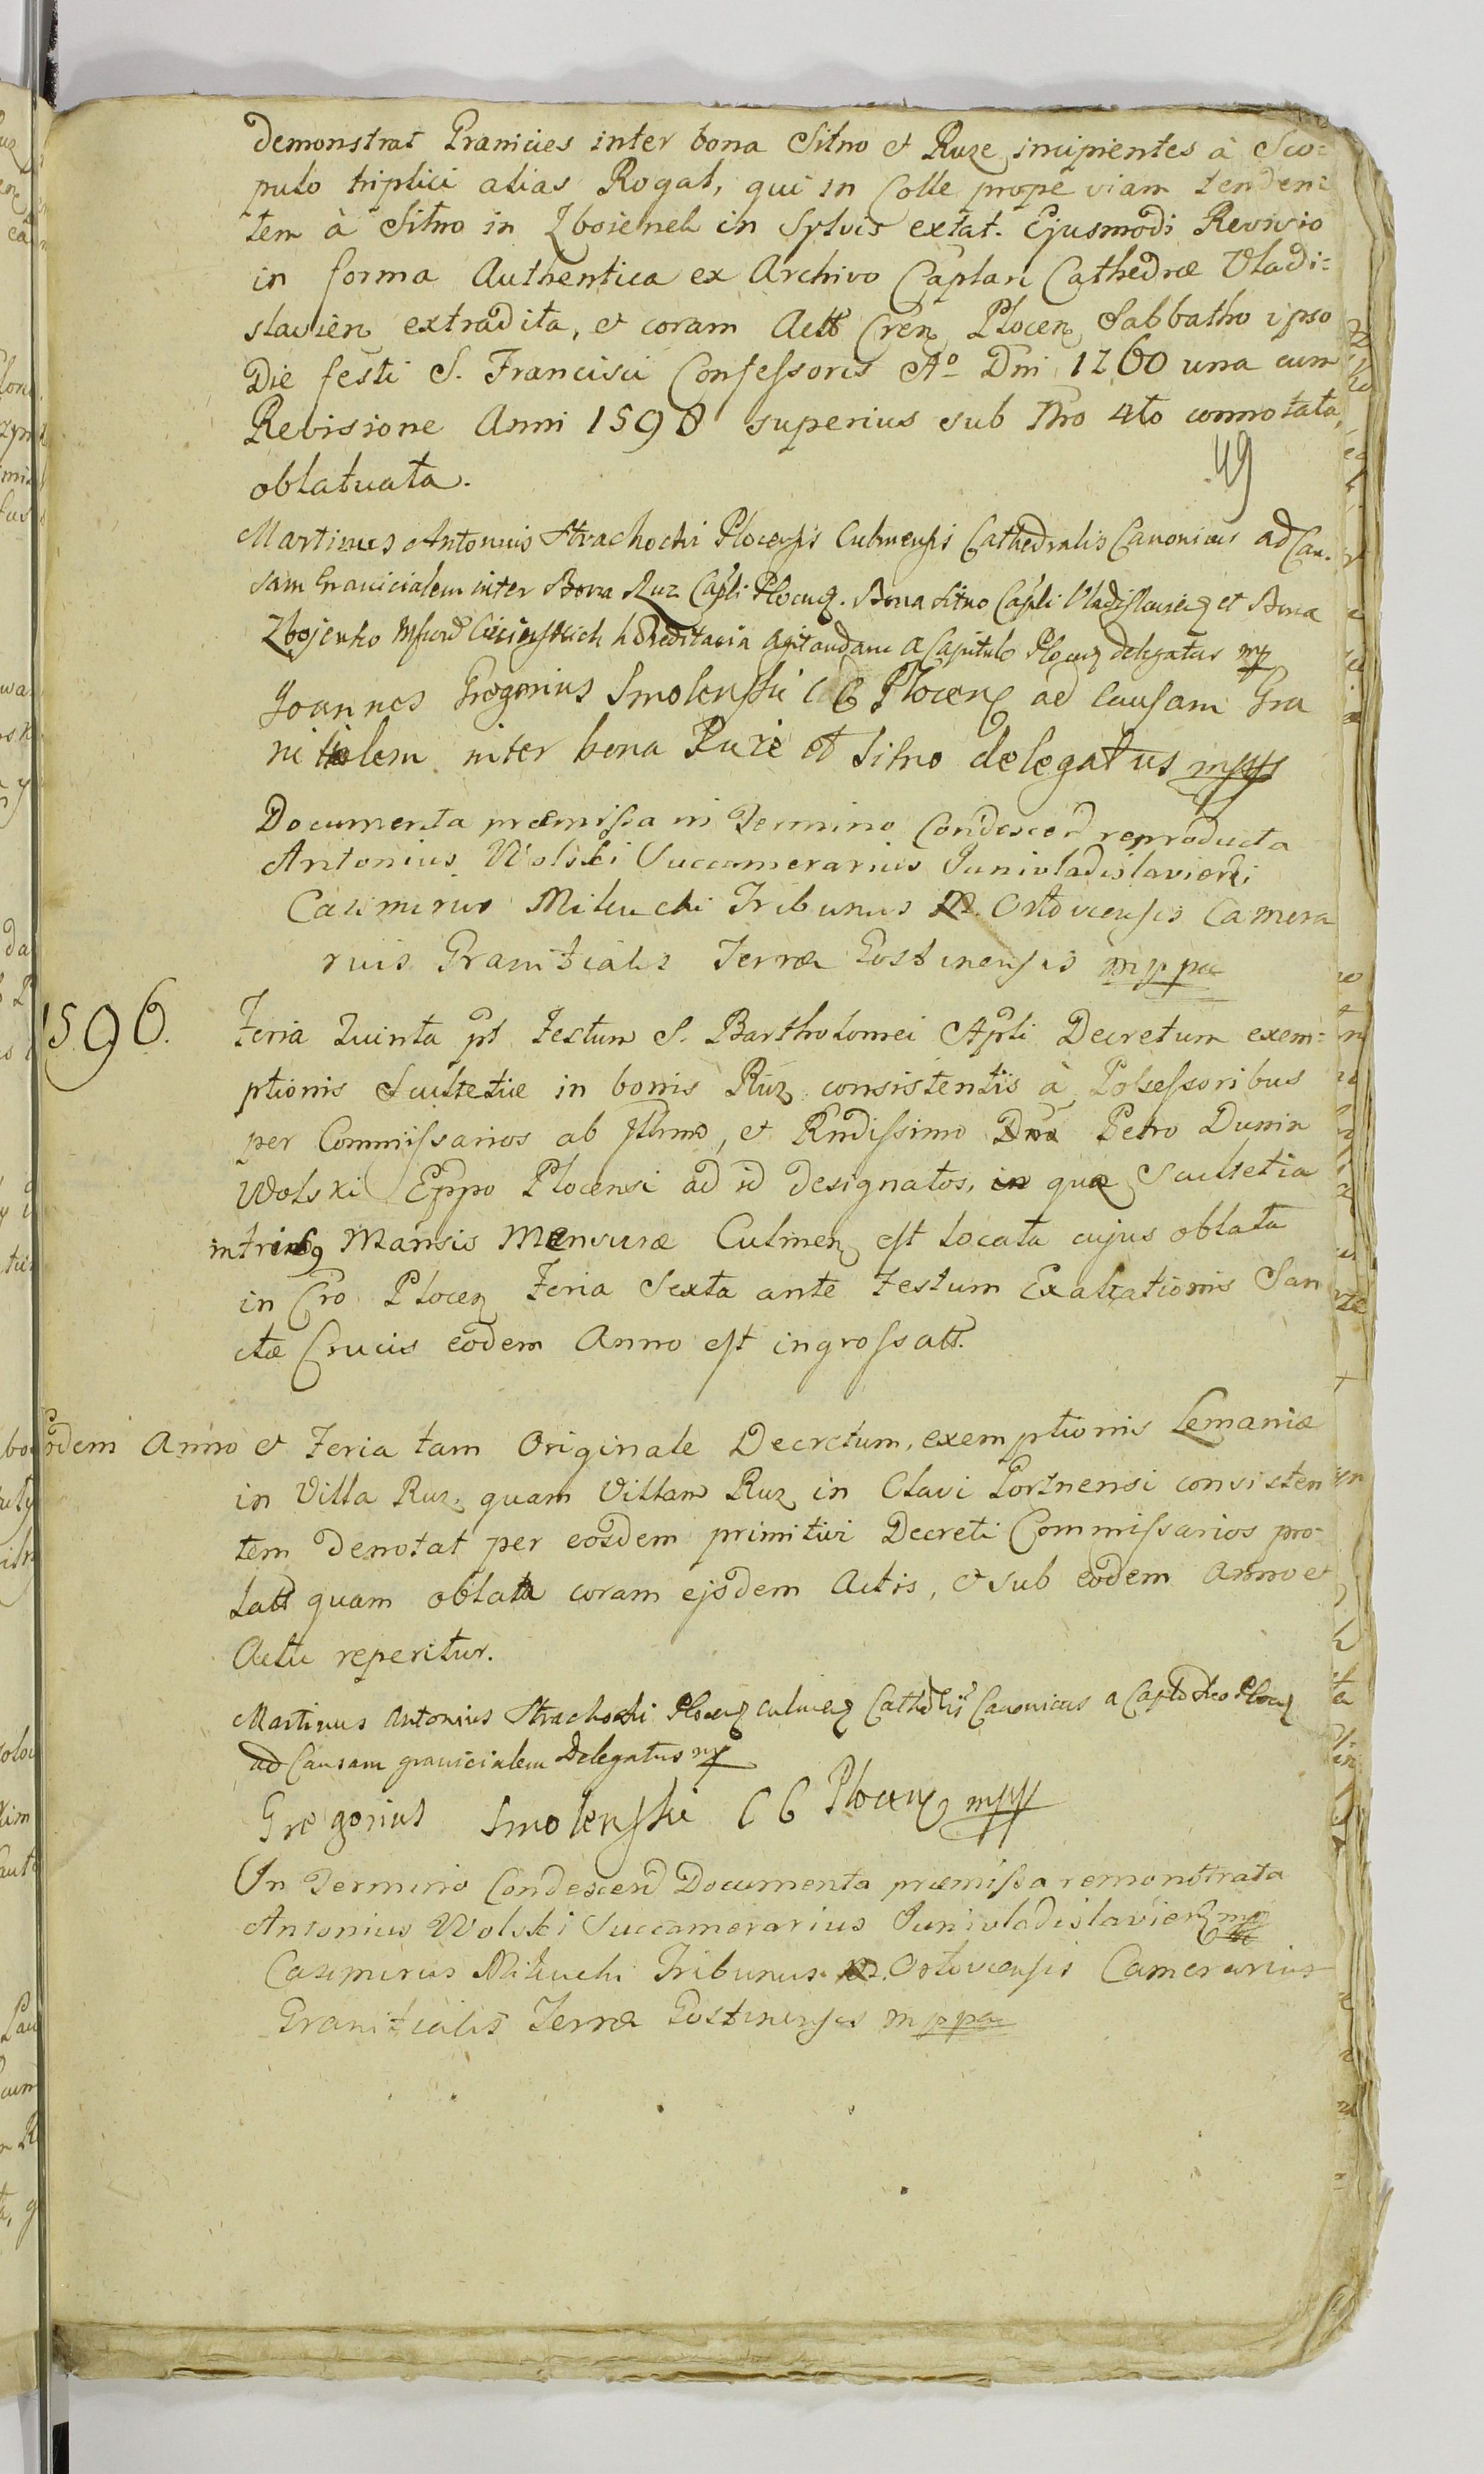 demonstrat Granicies inter bona Sitno et Ruze incipientes à Sco=
pulo triplici alias Rogal, qui in Colle prope viam tenden=
tem à Sitno in Zboienek in Sylvis extat. Ejusmodi Revisio
in forma Authentica ex Archivo Caplari Cathedræ Vladi=
slavien extradita, et coram Actt Cren Plocen Sabbatho ipso
Die festi S. Francisci Confessoris Ao Dni 1760 una cum
Revisione Anni 1598 superius sub Nro 4to connotata,
oblatuata.
49
Martinus Antonius Strachocki Plocensis Culmensis Cathedralis Canonicus ad Cau-
sam Granicialem inter Bona Ruz Capli Plocen. Bona Sitno Capli Vladislavien et Bona
Zbojenko hæreditaria agitandam a Capitulo Plocen delegatus mp
Joannes Gregorius Smolenski CC Plocen ad causam Gra
nitialem inter bona Ruze et Sitno delegatus mpp
Documenta præmissa in Termino Condescen reproducta
Antonius Wolski Succamerarius Junivladislavien
Casimirus Mikucki Tribunus M. Ostoviensis Camera
rius Granitialis Terræ Gostinensis mppa
1596. Feria Quinta pt Festum S. Bartholomei Apli Decretum exem=
ptionis Scultetiæ in bonis Ruz consistentis à Possessoribus
per Commissarios ab Illmo, et Rndissimo Dno Petro Dunin
Wolski Eppo Plocensi ad id designatos, in qua Scultetia
in tribq Mansis Mensuræ Culmen est locata cujus oblata
in Cro Plocen Feria Sexta ante Festum Exaltationis San
ctæ Crucis eodem Anno est ingrossatt.
Eodem Anno et Feria tam Originale Decretum, exemptionis Lemaniæ
in Villa Ruz, quam Villam Ruz in Clavi consisten
tem denotat per eosdem primitivi Decreti Commissarios pro-
latt quam oblata coram ejsdem Actis, et sub eodem Anno et
Actu reperitur.
Martinus Antonius Strachocki Plocen Culmen Cathdlis Canonicus a Caplo Plocen
ad Causam granicialem Delegatus mp
Gregorius Smolenski CC Plocen mpp
In Termino Condescen Documenta præmissa remonstrata
Antonius Wolski Succamerarius Junivladislavien mp
Casimirus Mikucki Tribunus M. Ostoviensis Camerarius
Granitialis Terræ Gostinensis mppa